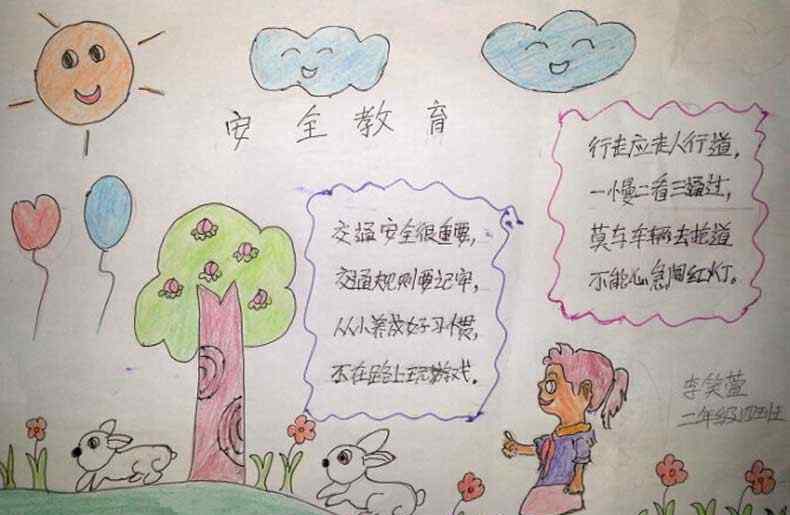 安全教育
交通安全很重要,
交通规则要记牢,
从小养成好习惯,
不在路上玩游戏。
行走应走人行道,
一慢二看三通过,
莫与车辆去抢道
不能心急闯红灯。
李笑萱
二年级四班